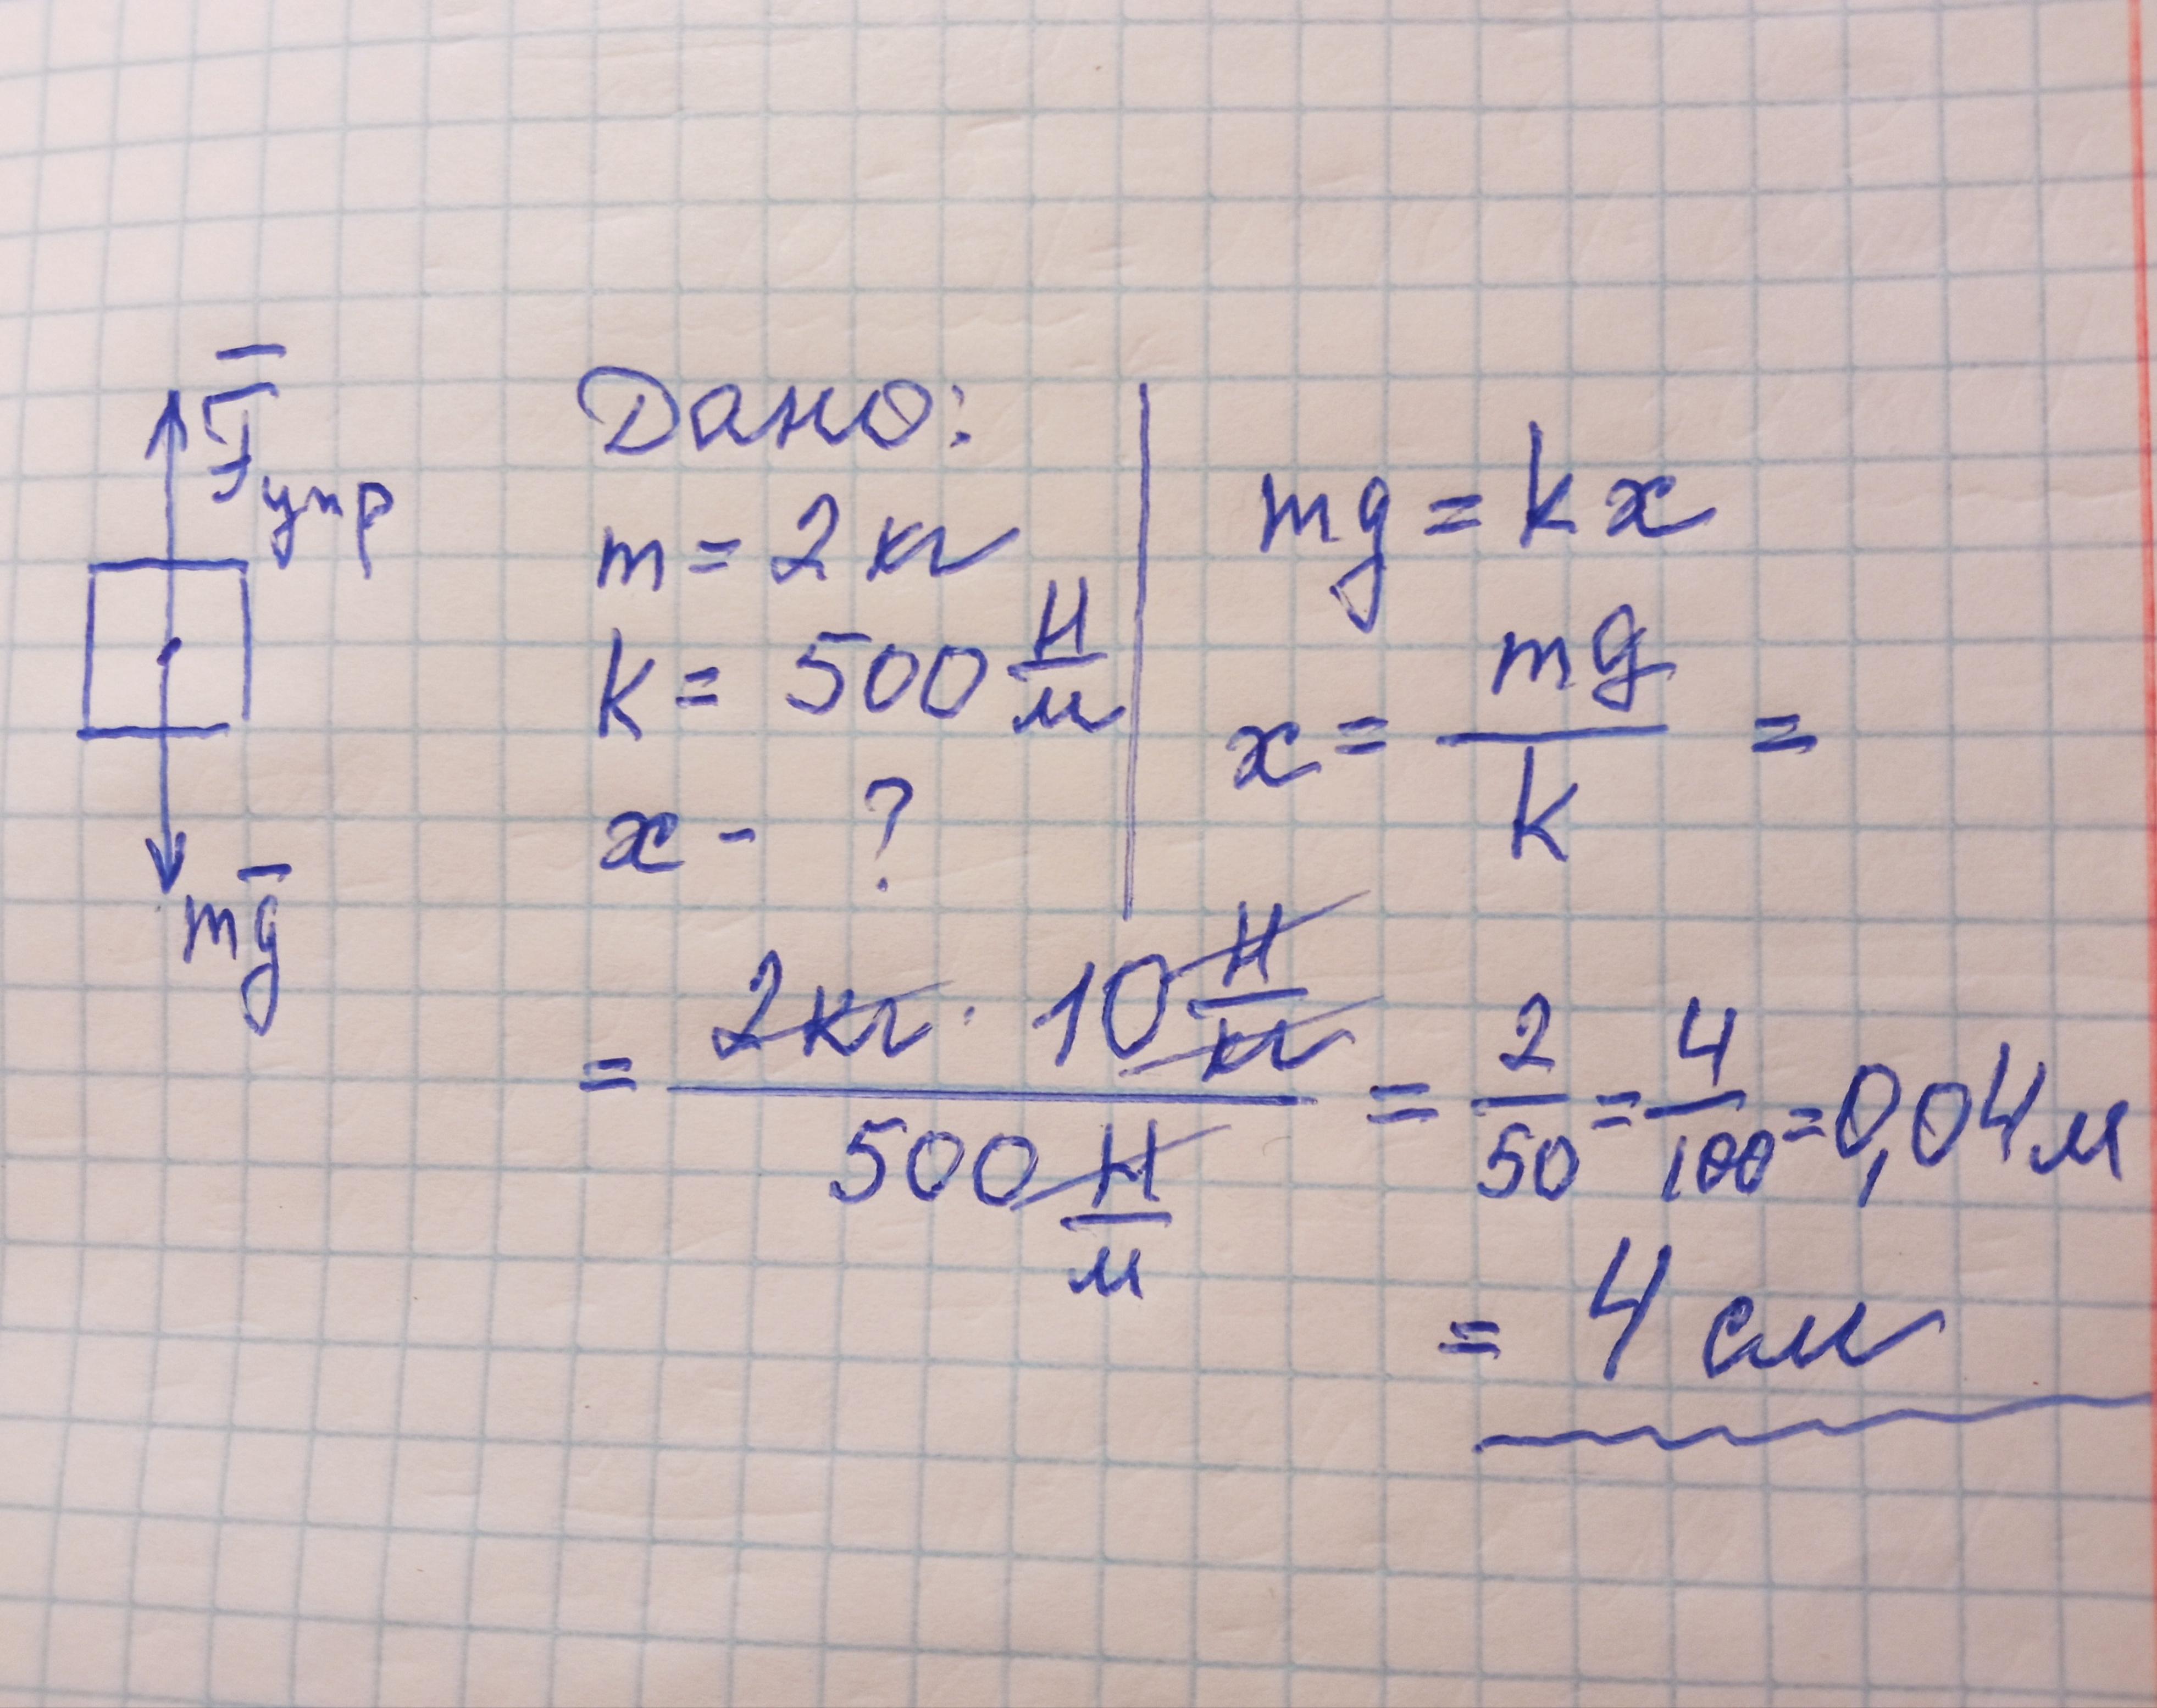 F̅упр
mg̅
Дано:
m = 2 кг
k = 500 Н/м
x - ?
mg = kx
x = mg/k =
= 2кг · 10 Н/кг / 500 Н/м = 2/50 = 4/100 = 0,04 м
= 4 см